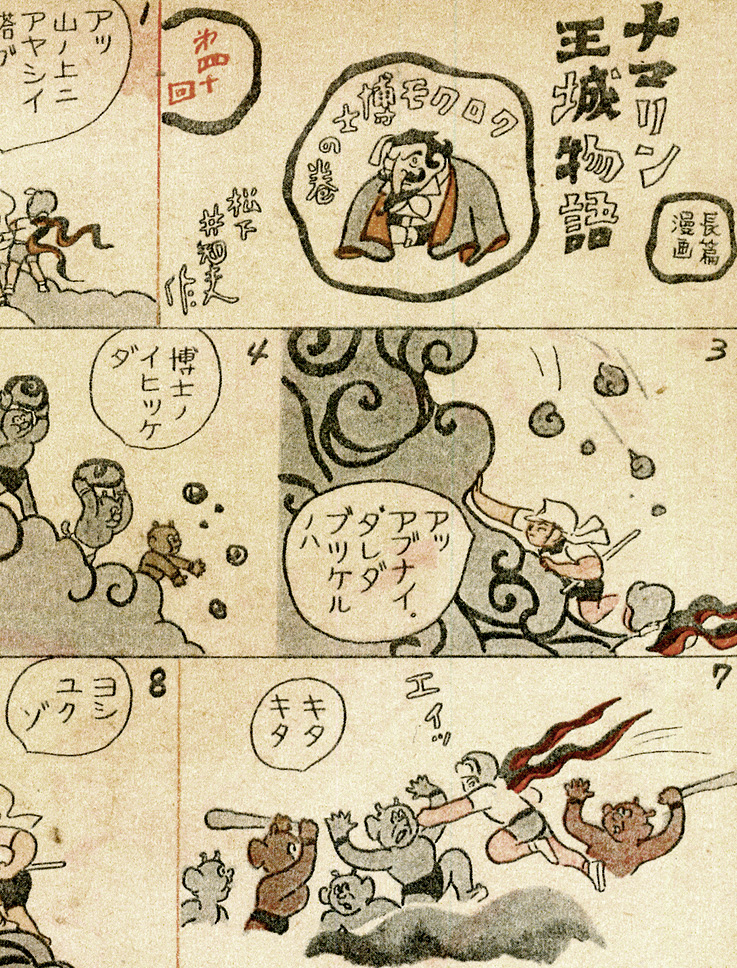 長篇
漫画
ナマリン
王城物語
クロクモ博士の巻
第四十
回
松下
井知夫
作
1
アッ
山ノ上ニ
アヤシイ
塔ガ
3
アッ
アブナイ。
ダレダ
ブツケル
ノハ
4
博士ノ
イヒツケ
ダ
7
エイッ
キタ
キタ
8
ヨシ
ユク
ゾ